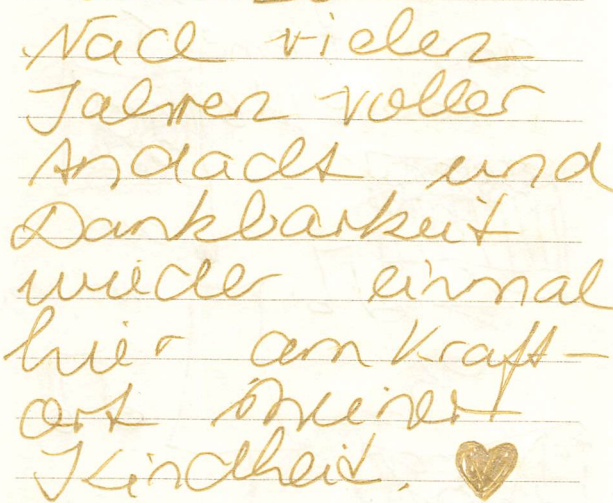 Nach vielen
Jahren voller
Andacht und
Dankbarkeit
wieder einmal
hier am Kraft-
ort meiner
Kindheit.